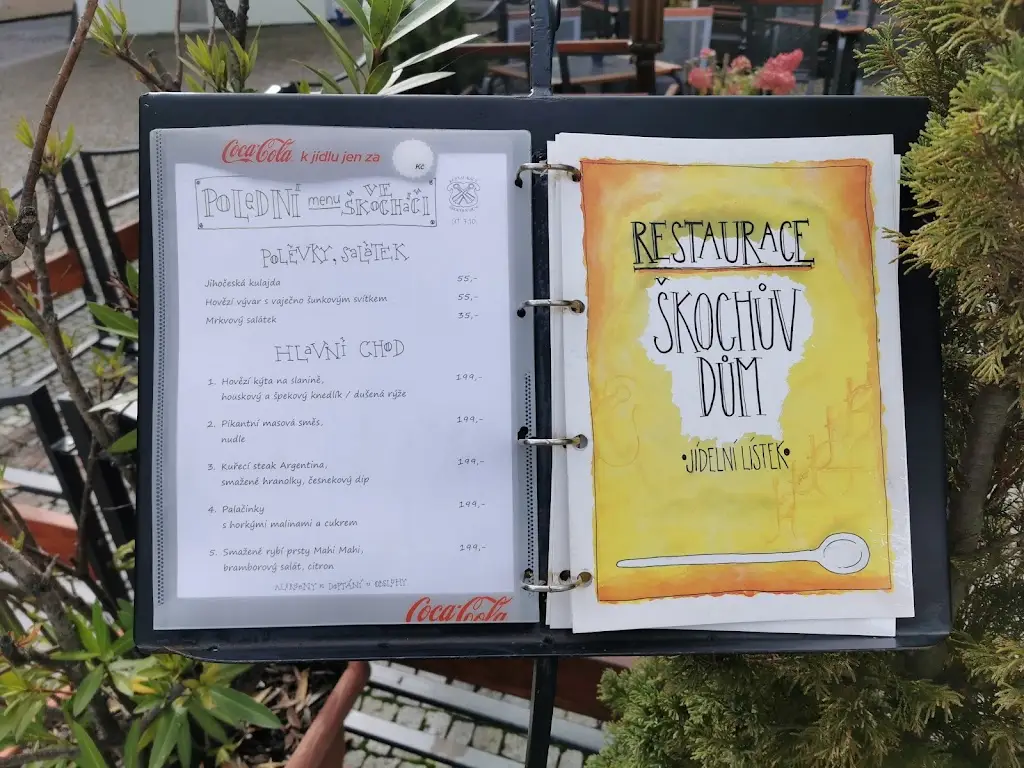 Coca-Cola k jídlu jen za
Kč
POLEDNÍ menu VE ŠKOCHÁČI
POLÉVKY, SALÁTEK
Jihočeská kulajda 55,-
Hovězí vývar s vaječno šunkovým svítkem 55,-
Mrkvový salátek 35,-
HLAVNÍ CHOD
1. Hovězí kýta na slanině, 199,-
houskový a špekový knedlík / dušená rýže
2. Pikantní masová směs, 199,-
nudle
3. Kuřecí steak Argentina, 199,-
smažené hranolky, česnekový dip
4. Palačinky 199,-
s horkými malinami a cukrem
5. Smažené rybí prsty Mahi Mahi, 199,-
bramborový salát, citron
Coca-Cola
RESTAURACE
ŠKOCHŮV
DŮM
•JÍDELNÍ LÍSTEK•